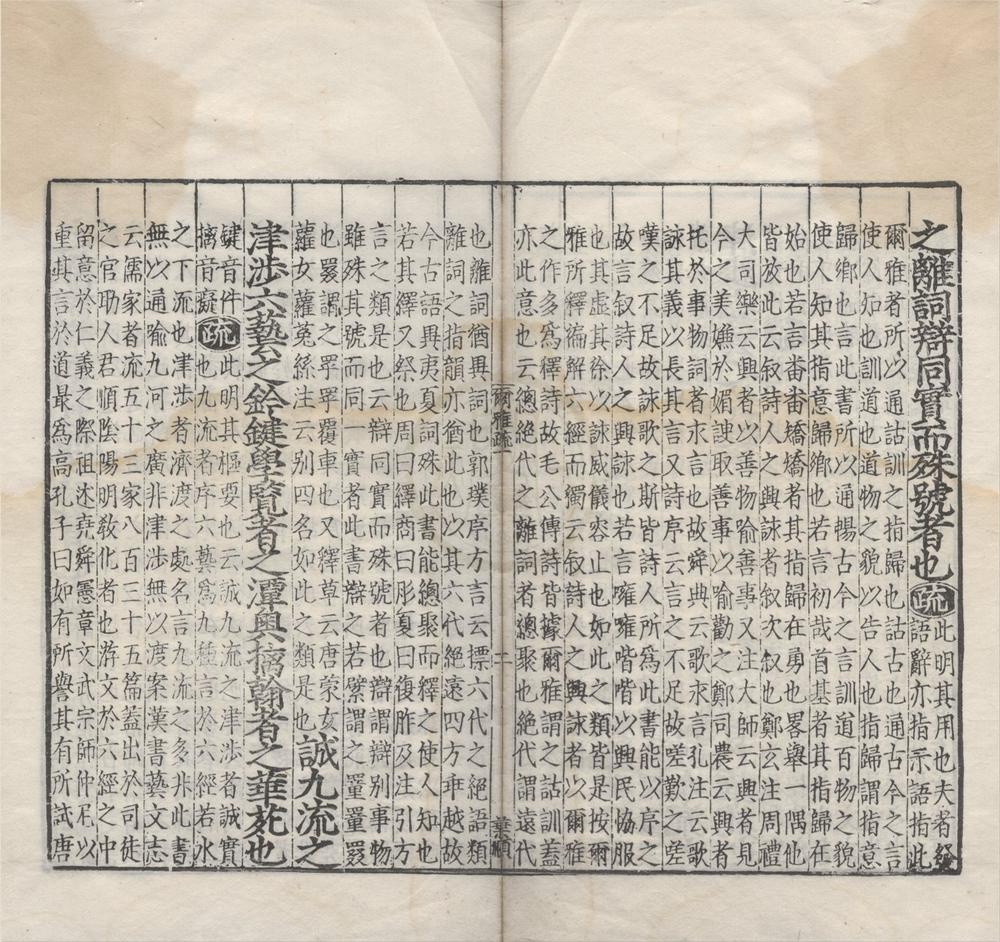 之離詞辯同實而殊號者也疏此明其用也夫者發
語辭亦指示語指此
爾雅者所以通詁訓之指歸也詁古也通古今之言
使人知也訓道也道物之貌以告人也指歸謂指意
歸鄉也言此書所以通暢古今之言訓道百物之貌
使人知其指意歸鄉也若言初哉首基者其指歸在
始也若言畨畨矯矯者其指歸在勇也畧舉一隅他
皆放此云叙詩人之興詠者叙次叙也鄭玄注周禮
大司樂云興者以善物喻善事又注大師云興者見
今之美嫌於媚諛取善事以喻勸之鄭司農云興者
托於事物詠者永言也故舜典云歌永言孔注云歌
詠其義以長其言又詩序云言之不足故嗟歎之嗟
嘆之不足故詠歌之斯皆詩人所爲此書能以序之
故言叙詩人之興詠也若言噰噰喈喈以興民協服
也其虛其徐以詠威儀容止也如此之類皆是按爾
雅所釋徧解六經而獨云叙詩人之興詠者以爾雅
之作多爲釋詩故毛公傳詩皆據爾雅謂之詁訓蓋
亦此意也云總絕代之離詞者總聚也絕代謂遠代
爾雅疏一
二
葉順
也離詞猶異詞也郭璞序方言云摽六代之絕語類
離詞之指韻亦猶此也以其六代絕遠四方乖越故
今古語異夷夏詞殊此書能總聚而釋之使人知也
若其繹又祭也周曰繹商曰肜夏曰復胙及注引方
言之類是也云辯同實而殊號者也辯謂辯别事物
雖殊其號而同一實者此書辯之若繴謂之罿罿罬
也罬謂之罦罦覆車也又釋草云蒙女
蘿女蘿菟絲注云别四名如此之類是也誠九流之
津涉六藝之鈐鍵學覽者之潭奧摛翰者之華苑也
鍵音件
摛音癡疏此明其樞要也云誠九流之津涉者誠實
也九流者序六藝爲九種言於六經若水
之下流也津涉者濟渡之處名言九流之多非此書
無以通喻九河之廣非津涉無以渡案漢書藝文志
云儒家者流五十三家八百三十五篇蓋出於司徒
之官助人君順陰陽明敎化者也游文於六經之中
留意於仁義之際祖述堯舜憲章文武宗師仲尼以
重其言於道最爲高孔子曰如有所譽其有所試唐